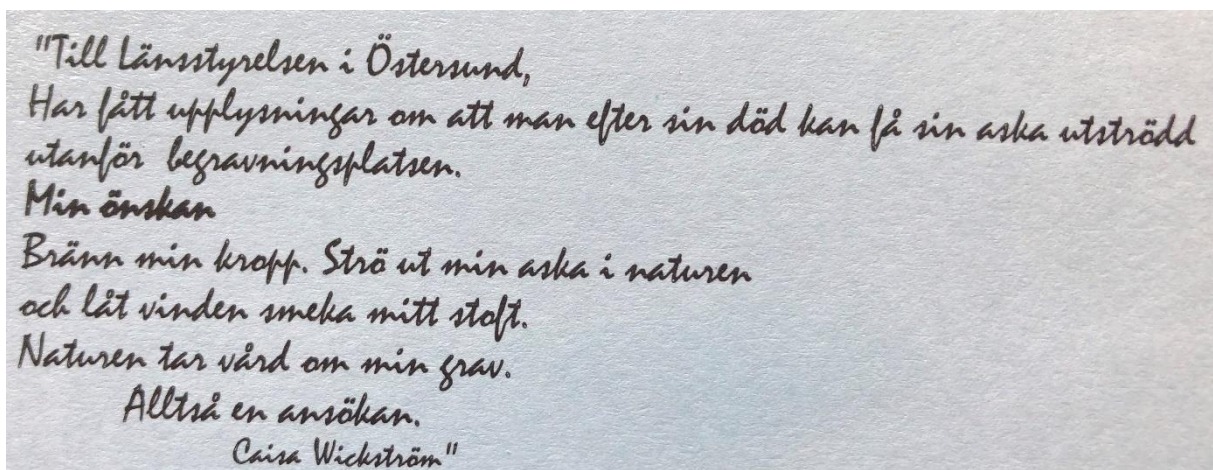 "Till Länsstyrelsen i Östersund,
Har fått upplysningar om att man efter sin död kan få sin aska utströdd
utanför begravningsplatsen.
Min önskan
Bränn min kropp. Strö ut min aska i naturen
och låt vinden smeka mitt stoft.
Naturen tar vård om min grav.
Alltså en ansökan.
Caisa Wickström"